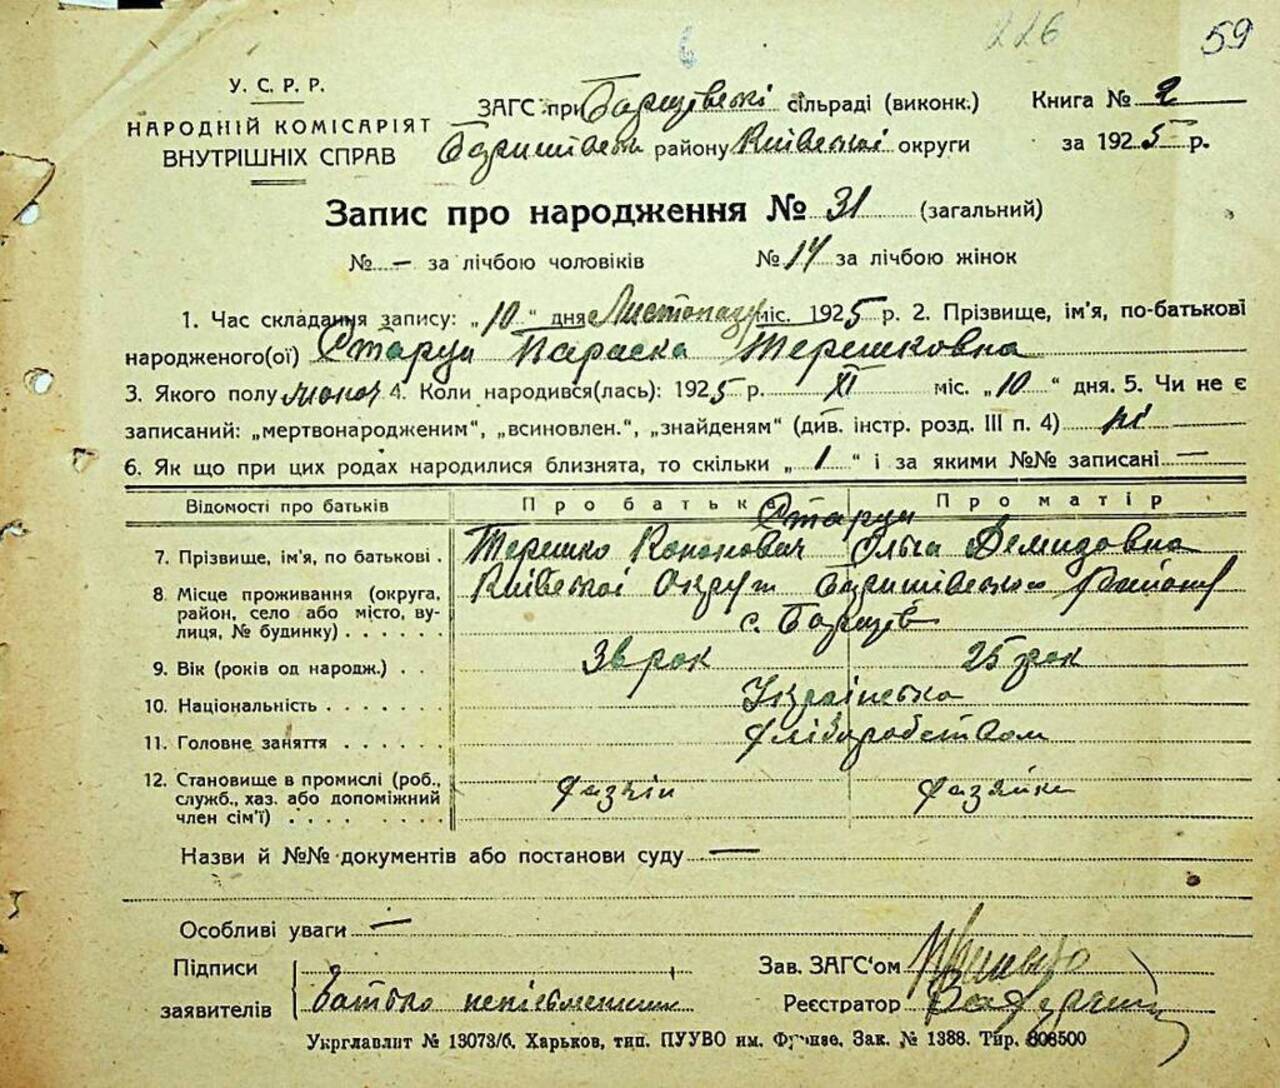 226
59
У. С. Р. Р.
НАРОДНІЙ КОМІСАРІЯТ
ВНУТРІШНІХ СПРАВ
ЗАГС при Борщівські сільраді (виконк.)
Баришівськ району Київської округи
Книга № 2
за 1925 р.
Запис про народження № 31 (загальний)
№ — за лічбою чоловіків
№ 14 за лічбою жінок
1. Час складання запису: „10“ дня Листопад міс. 1925 р. 2. Прізвище, ім'я, по-батькові
народженого(ої) Параска Терешковна
3. Якого полу жіноч 4. Коли народився(лась): 1925 р. XI міс. „10“ дня. 5. Чи не є
записаний: „мертвонародженим“, „всиновлен.“, „знайденям“ (див. інстр. розд. III п. 4) ні
6. Як що при цих родах народилися близнята, то скільки „1“ і за якими №№ записані —
Відомості про батьків
Про батька
Про матір
7. Прізвище, ім'я, по батькові .
Терешко Кононович
Ольга Демидовна
8 Місце проживання (округа,
район, село або місто, ву-
лиця, № будинку) . . . . . .
Київської Округи Баришівського Району
с. Борщів
9. Вік (років од народж.) . .
36 рок
25 рок
10. Національність . . . . . . .
Українська
11. Головне заняття . . . . . .
Хліборобством
12. Становище в промислі (роб.,
служб., хаз. або допоміжний
член сім'ї) . . . . . . . .
хазяін
хазяйка
Назви й №№ документів або постанови суду —
Особливі уваги —
Підписи
заявителів
Батько неписьменний
Зав. ЗАГС'ом
Реєстратор
Укрглавлит № 13073/б. Харьков, тип. ПУУВО им. Фрунзе. Зак. № 1388. Тир. 808500